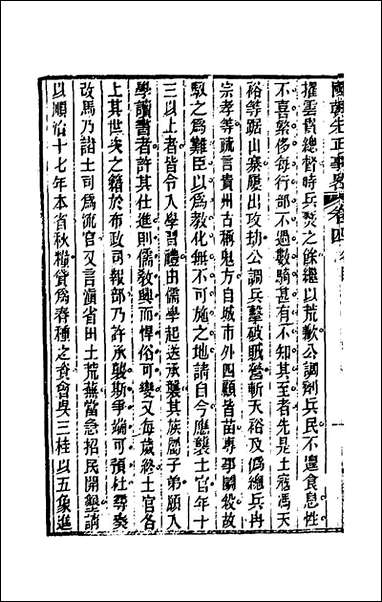 國朝先正事略 卷四
擢雲貴總督時兵燹之餘繼以荒歉公調劑兵民不遑食息性
不喜繁侈每行部不過數騎甚有不知其至者先是土寇馮天
裕等踞山寨屢出攻劫公調兵擊破賊營斬天裕及偽總兵冉
宗孝等疏言貴州古稱鬼方自城市外四顧皆苗專事鬬殺故
馭之為難臣以為教化無不可施之地請自今應襲土官年十
三以上者皆令入學習禮由儒學起送承襲其族屬子弟願入
學讀書者許其仕進則儒教興而悍俗可變又每歲終土官各
上其世系之籍於布政司報部乃許承襲斯爭端可預杜尋奏
改馬乃諸土司為流官又言滇省田土荒蕪當急招民開墾請
以順治十七年本省秋糧貸為春種之食會吳三桂以五象進